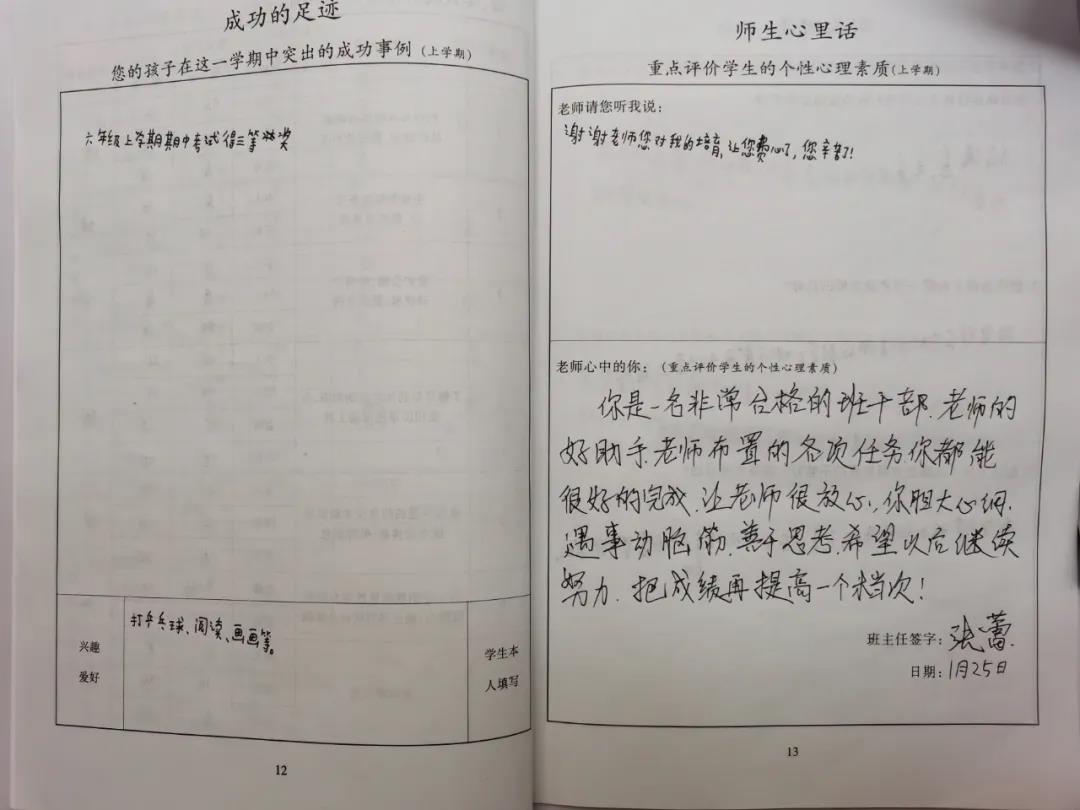 成功的足迹
您的孩子在这一学期中突出的成功事例(上学期)
六年级上学期期中考试得三等奖
打乒乓球、阅读、画画等。
兴趣
爱好
学生本
人填写
12
师生心里话
重点评价学生的个性心理素质(上学期)
老师请您听我说:
谢谢老师您对我的培育,让您费心了,您辛苦了!
老师心中的你:(重点评价学生的个性心理素质)
你是一名非常合格的班干部.老师的
好助手.老师布置的各项任务你都能
很好的完成.让老师很放心,你胆大心细.
遇事动脑筋.善于思考.希望以后继续
努力.把成绩再提高一个档次!
班主任签字:张蕾.
日期:1月25日
13